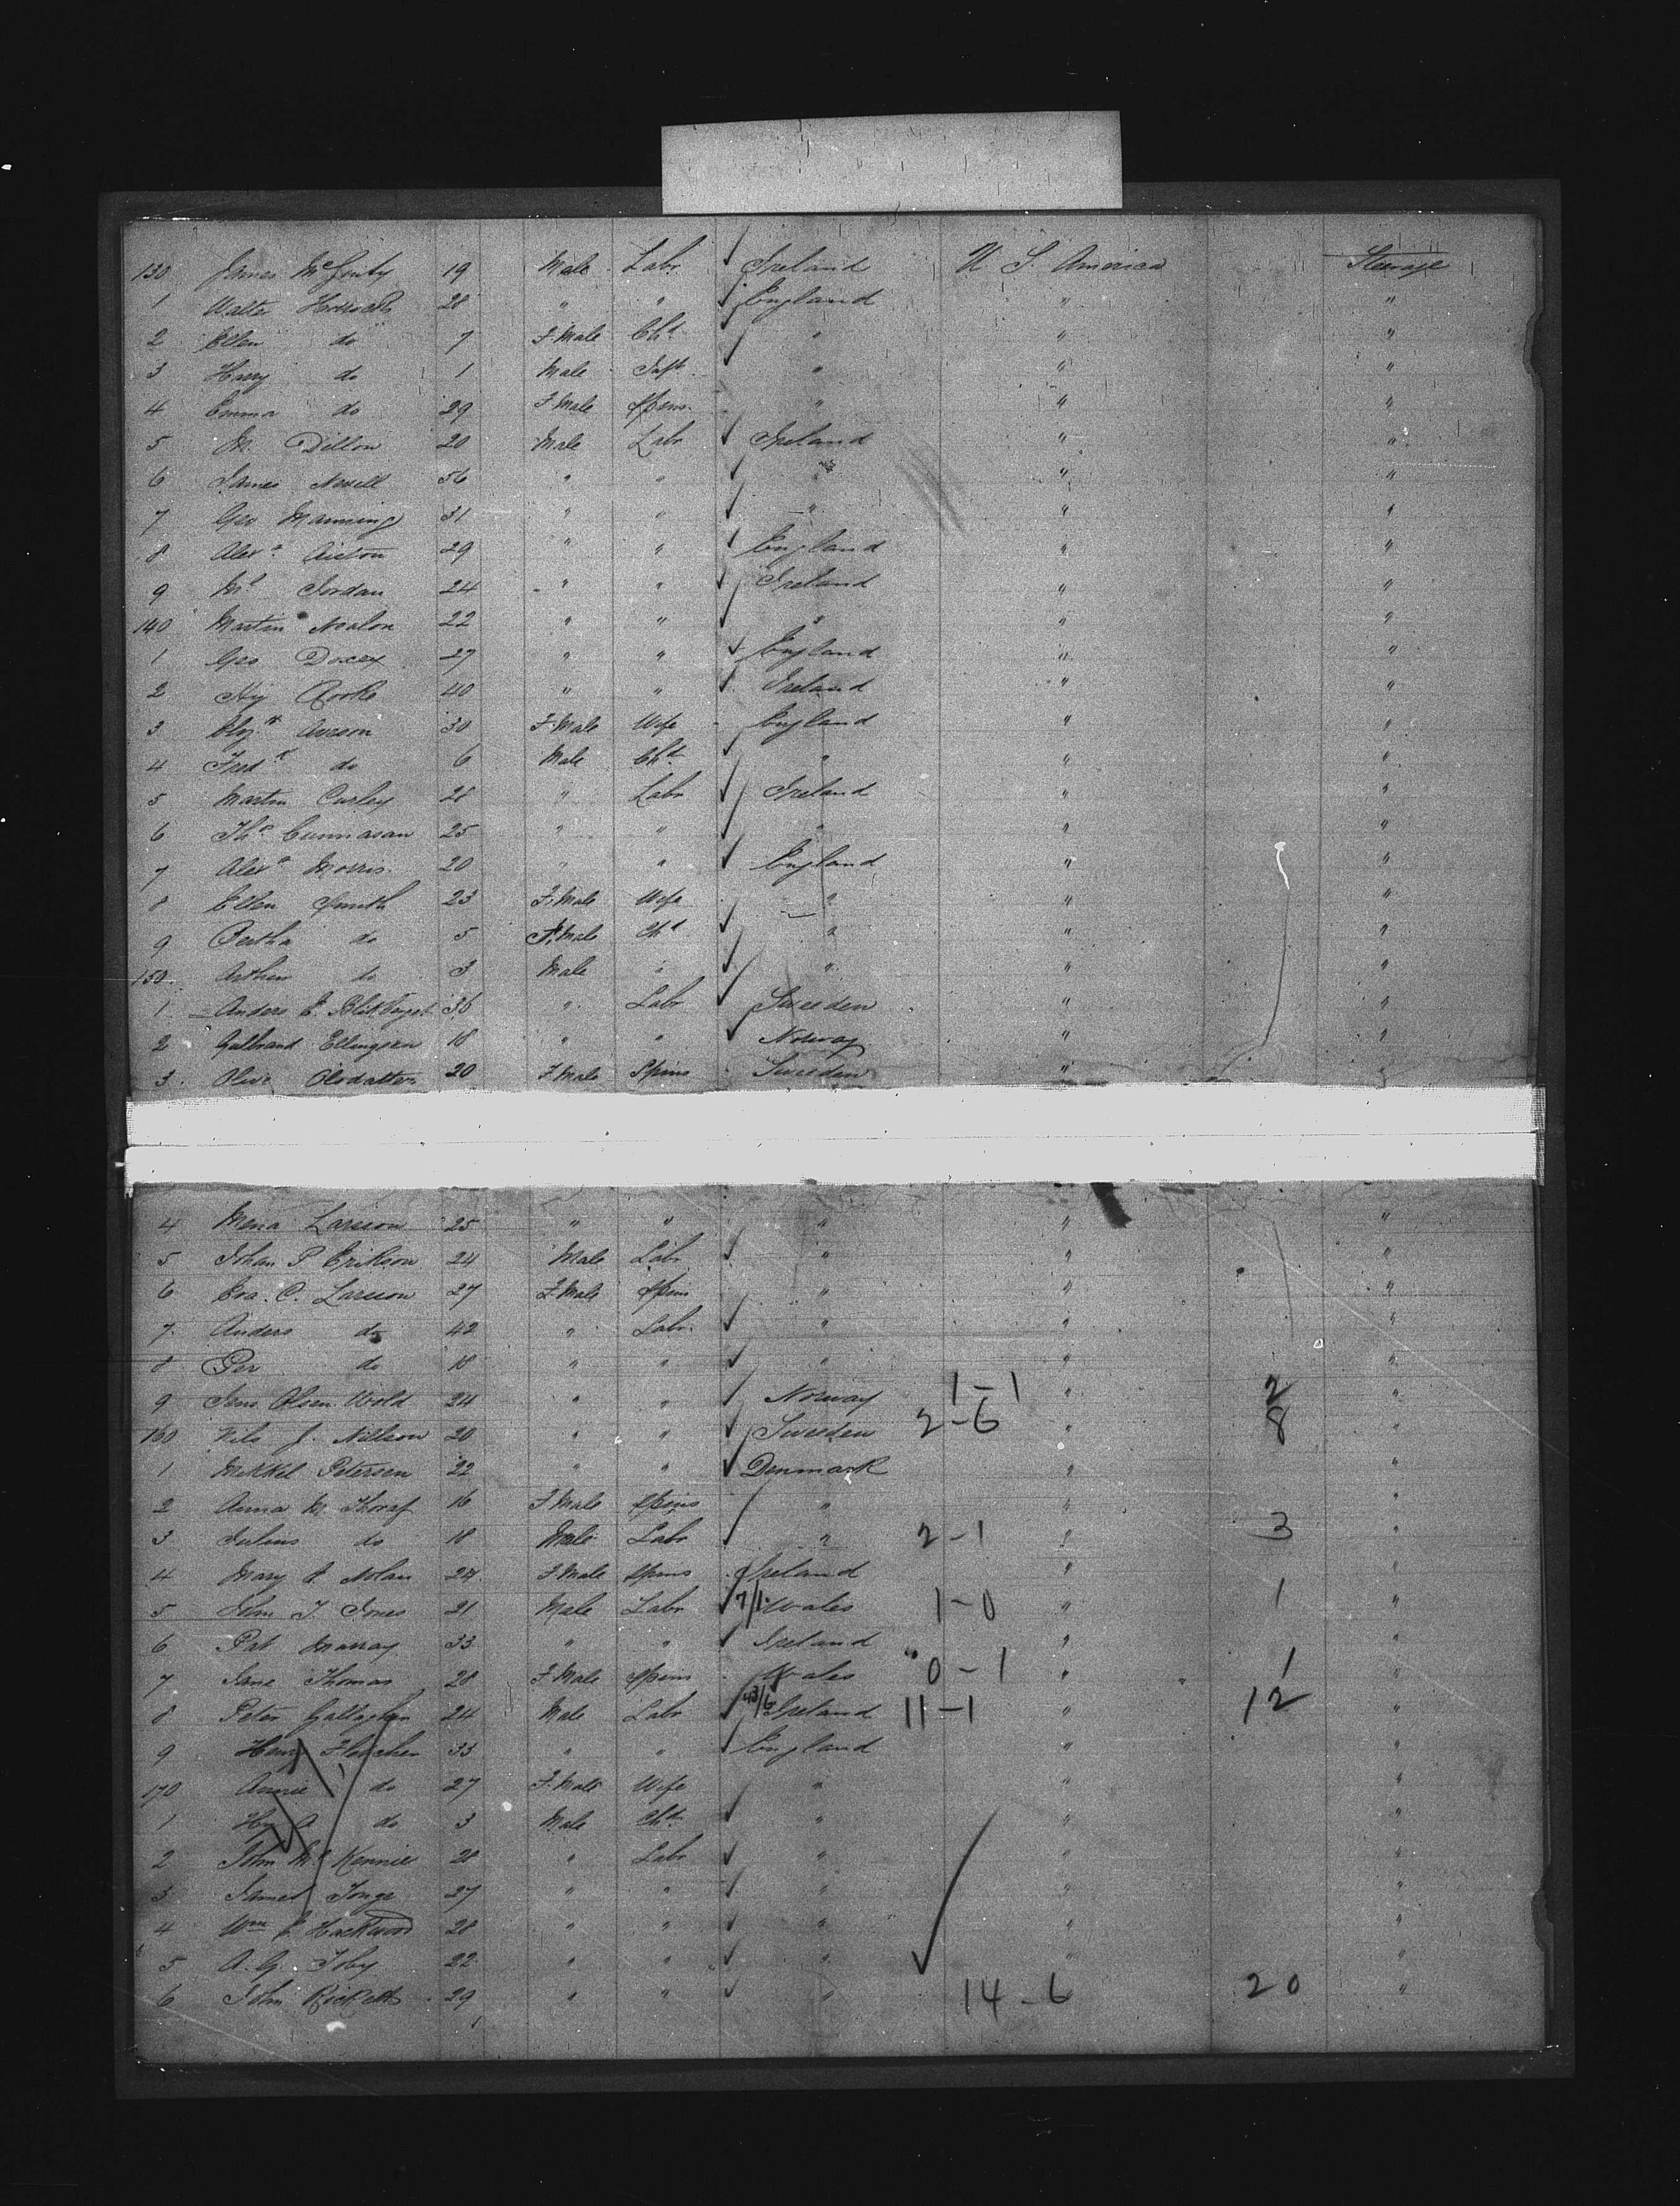 130 James McGinty 19 Male Labr Ireland U. S. America Steerage
1 Walter 28 " " England " "
2 Ellen do 7 F.Male Chd " " "
3 Harry do 1 Male Inft " " "
4 Emma do 29 F.Male Spins " " "
5 M. Dillon 20 Male Labr Ireland " "
6 James Nevill 56 " " " " "
7 Geo Manning 31 " " " " "
8 Alexr 29 " " England " "
9 Ml Jordan 24 " " Ireland " "
140 Martin Nealon 22 " " " " "
1 Geo Docex 27 " " England " "
2 Hy Rooke 40 " " Ireland " "
3 Elizth Aveson 30 F.Male Wife England " "
4 Fredk do 6 Male Chd " " "
5 Martin Curley 28 " Labr Ireland " "
6 Ths 25 " " " " "
7 Alexr Morris 20 " " England " "
8 Ellen Smith 23 F.Male Wife " " "
9 Bertha do 5 F.Male Chd " " "
150 Arthur do 3 Male " " " "
1 Anders E. 36 " Labr Sweeden " "
2 Gulbrand Ellingsen 18 " " Norway " "
3 Olive Olsdatter 20 F.Male Spins Sweeden " "
4 Mena Larsson 25 " " " " "
5 Johan P Erikson 24 Male Labr " " "
6 Eva. C. Larsson 27 F.Male Spins " " "
7 Anders do 42 " Labr " " "
8 Per do 18 " " " " "
9 Jens Olsen Wold 24 " " Norway 1-1 " 2 "
160 Nils J. Nillson 20 " " Sweeden 2-6 " 8 "
1 Mikkel Petersen 22 " " Denmark " "
2 Anna M. 16 F.Male Spins " " "
3 Julius do 18 Male Labr " 2-1 " 3 "
4 Mary E. Nolan 24 F.Male Spins Ireland " "
5 John T. Jones 21 Male Labr 7/1 Wales 1-0 " 1 "
6 Pat Murray 33 " " Ireland " "
7 Jane Thomas 28 F.Male Spins Wales 0-1 " 1 "
8 Peter Gallagher 24 Male Labr 43/6 Ireland 11-1 " 12 "
9 Henry Fletcher 33 " " England " "
170 Annie do 27 F.Male Wife " " "
1 Hy A do 3 Male Chd " " "
2 John McKennie 28 " Labr " " "
3 James Tonge 27 " " " " "
4 Wm E. Hackwood 28 " " " " "
5 A. G. Toby 22 " " " " "
6 John Ricketts 29 " " " 14-6 20 "